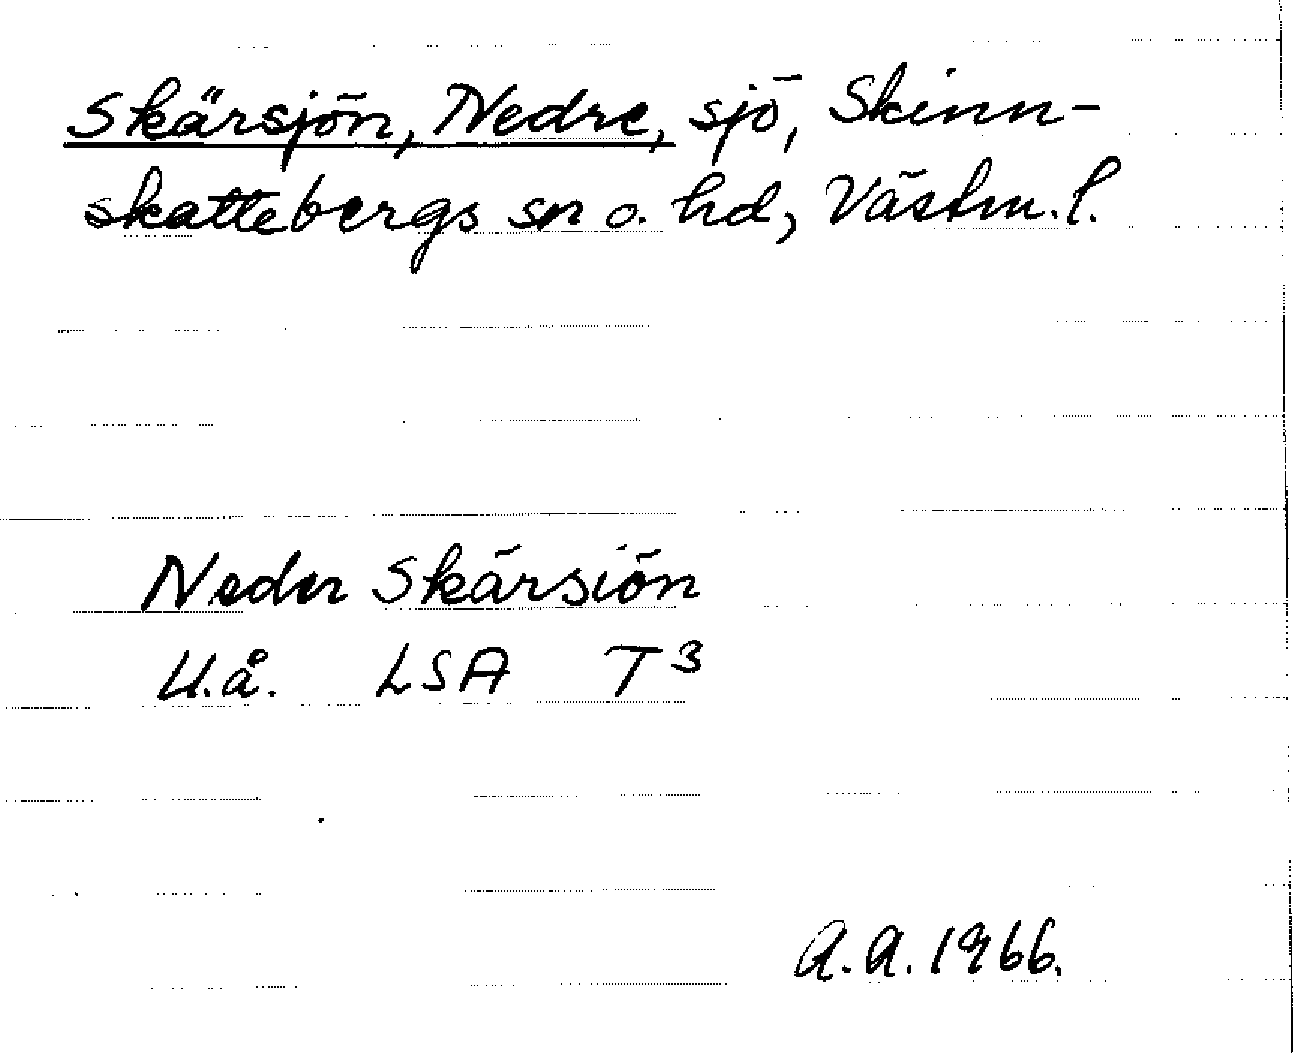 Skärsjön, Nedre, sjö, Skinn-
skattebergs sn o. hd, Västm. l.
Neder Skärsiön
U.å. LSA T3
A.A. 1966.